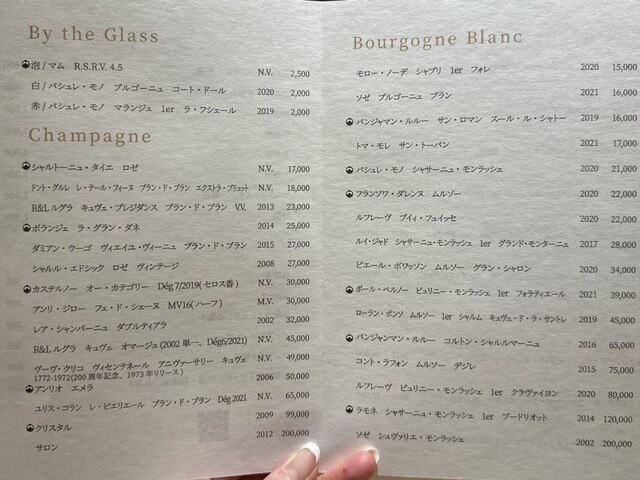 By the Glass
泡/マム R.S.R.V. 4.5 N.V. 2,500
白/パシュレ・モノ ブルゴーニュ コート・ドール 2020 2,000
赤/パシュレ・モノ マランジュ 1er ラ・フシェール 2019 2,000
Champagne
シャルトーニュ・タイエ ロゼ N.V. 17,000
ドント・グルレ レ・テール・フィーヌ ブラン・ド・ブラン エクストラ・ブリュット N.V. 18,000
R&Lルグラ キュヴェ・プレジダンス ブラン・ド・ブラン V.V. 2013 23,000
ボランジェ ラ・グラン・ダネ 2014 25,000
ダミアン・ウーゴ ヴィエイユ・ヴィーニュ ブラン・ド・ブラン 2015 27,000
シャルル・エドシック ロゼ ヴィンテージ 2008 27,000
カステルノー オー・カテゴリー Dég 7/2019(セロス香) N.V. 30,000
アンリ・ジロー フュ・ド・シェーヌ MV16(ハーフ) M.V. 30,000
レア・シャンパーニュ ダブルティアラ 2002 32,000
R&Lルグラ キュヴェ オマージュ(2002単一、Dég6/2021) N.V. 45,000
ヴーヴ・クリコ ヴィセンテネール アニヴァーサリー キュヴェ N.V. 49,000
1772-1972(200周年記念、1973年リリース)
アンリオ エメラ 2006 50,000
ユリス・コラン レ・ピエリエール ブラン・ド・ブラン Dég 2021 N.V. 65,000
クリスタル 2009 99,000
サロン 2012 200,000
Bourgogne Blanc
モロー・ノーデ シャブリ 1er フォレ 2020 15,000
ソゼ ブルゴーニュ ブラン 2021 16,000
パンジャマン・ルルー サン・ロマン スール・ル・シャトー 2019 16,000
トマ・モレ サン・トーバン 2021 17,000
パシュレ・モノ シャサーニュ・モンラッシェ 2020 21,000
フランソワ・ダレンヌ ムルソー 2020 22,000
ルフレーヴ プイィ・フュイッセ 2020 22,000
ルイ・ジャド シャサーニュ・モンラッシェ 1er グランド・モンターニュ 2017 28,000
ピエール・ボワッソン ムルソー グラン・シャロン 2020 34,000
ポール・ペルノー ピュリニー・モンラッシェ 1er フォラティエール 2021 39,000
ローラン・ポンソ ムルソー 1er シャルム キュヴェ・ド・ラ・サントレ 2019 45,000
パンジャンマン・ルルー コルトン・シャルルマーニュ 2016 65,000
コント・ラフォン ムルソー デジレ 2015 75,000
ルフレーヴ ピュリニー・モンラッシェ 1er クラヴァイヨン 2020 80,000
ラモネ シャサーニュ・モンラッシェ 1er ブードリオット 2014 120,000
ソゼ シュヴァリエ・モンラッシェ 2002 200,000